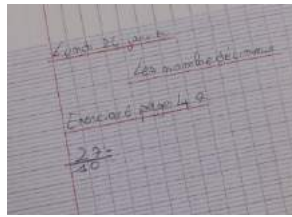 Lundi
Les nombre decimaux
Exercice 6 page 49
27=
10